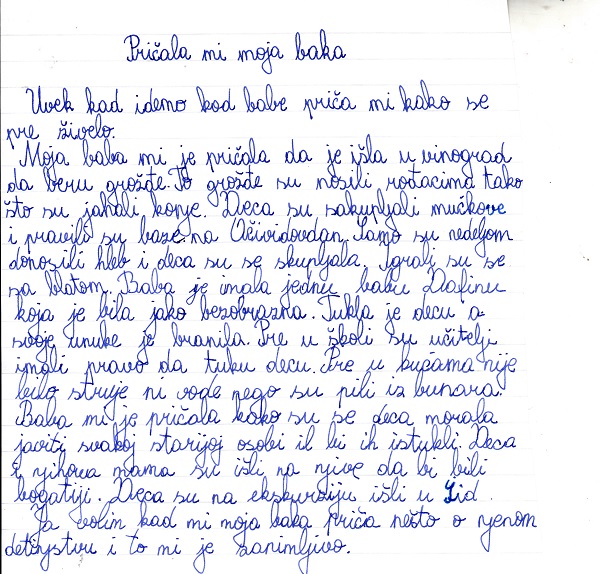 Pričala mi moja baka
Uvek kad idemo kod babe priča mi kako se
pre živelo.
Moja baba mi je pričala da je išla u vinograd
da beru grožđe. To grožđe su nosili rođacima tako
što su jahali konje. Deca su sakupljali mučkove
i pravili su baze na Očividovdan. Samo su nedeljom
donosili hleb i deca su se skupljala. Igrali su se
sa blatom. Baba je imala jednu babu Dafinu
koja je bila jako bezobrazna. Tukla je decu a
svoje unuke je branila. Pre u školi su učitelji
imali pravo da tuku decu. Pre u kućama nije
bilo struje ni vode nego su pili iz bunara.
Baba mi je pričala kako su se deca morala
javiti svakoj starijoj osobi il bi ih istukli. Deca
i njihova mama su išli na njive da bi bili
bogatiji. Deca su na ekskurziju išli u Zid.
Ja volim kad mi moja baka priča nešto o njenom
detinjstvu i to mi je zanimljivo.